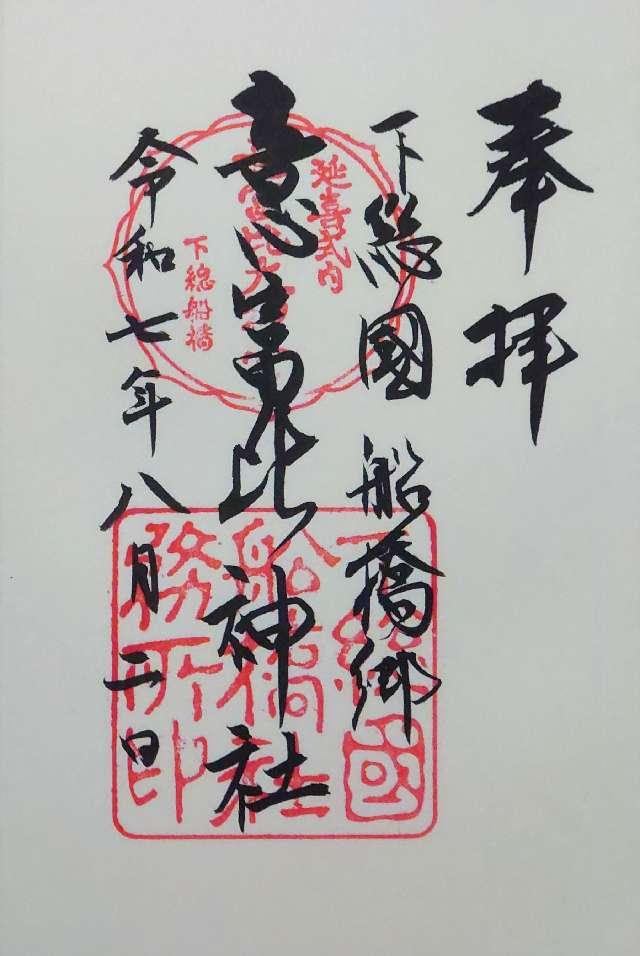 奉拝
下総國船橋郷
意富比神社
令和七年八月二日
延喜式内
下総船橋
下総國
船橋社
務所印